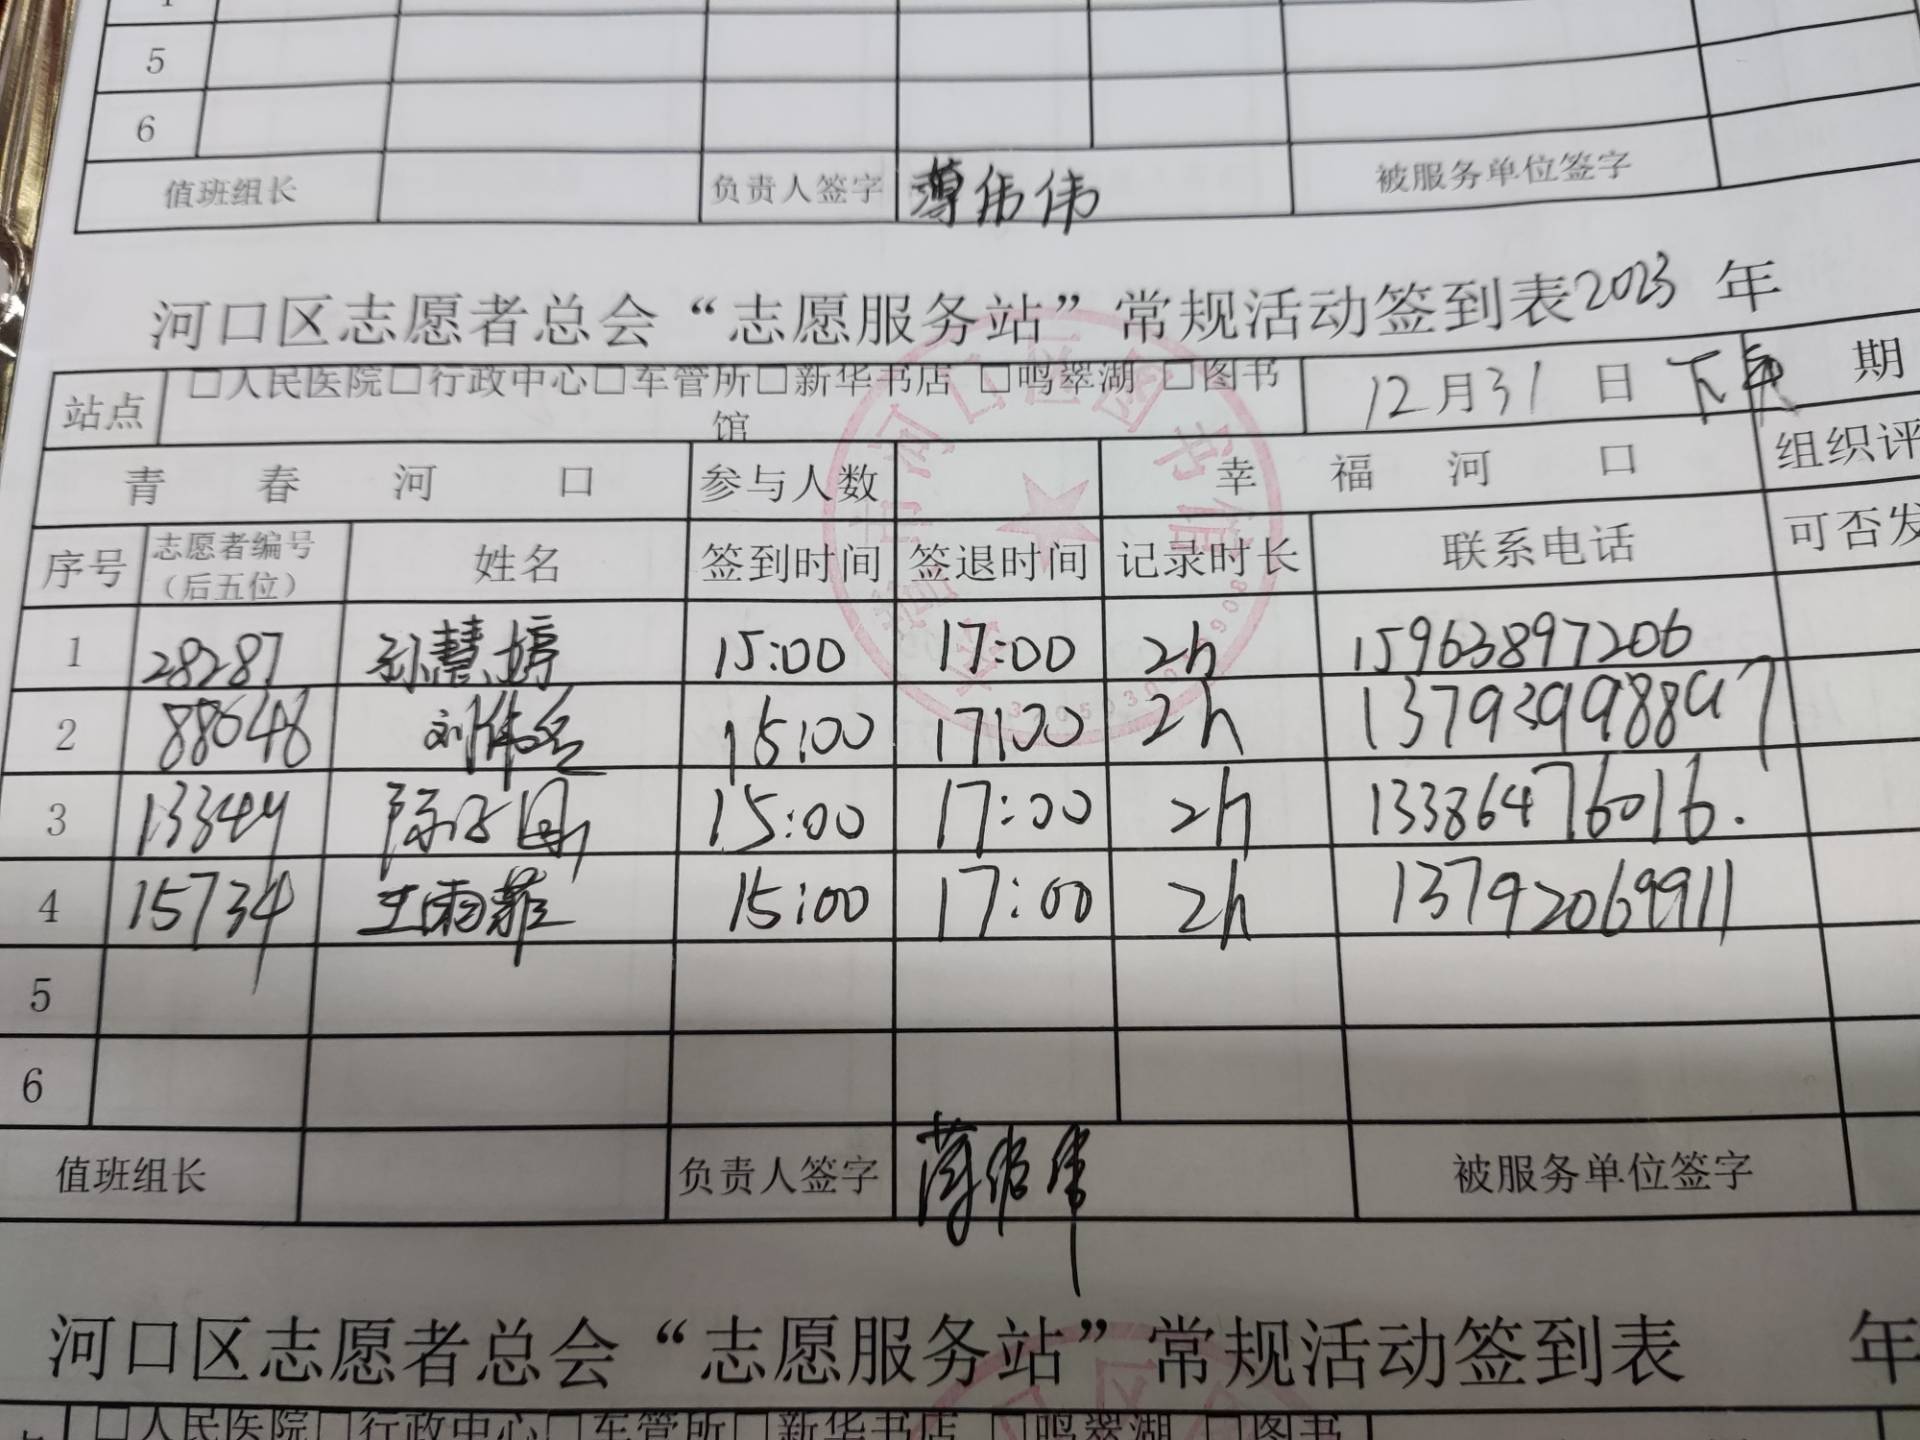 5
6
值班组长 负责人签字 被服务单位签字
河口区志愿者总会“志愿服务站”常规活动签到表2023 年
站点 □人民医院□行政中心□车管所□新华书店 □鸣翠湖 □图书馆 12月31日 下午 期
青春河口 参与人数 幸福河口 组织评
序号 志愿者编号（后五位） 姓名 签到时间 签退时间 记录时长 联系电话 可否发
1 28287 孙慧婷 15:00 17:00 2h 15963897206
2 88648 15:00 17:00 2h 13793998897
3 13344 15:00 17:00 2h 13386476016.
4 15734 王雨菲 15:00 17:00 2h 13792069911
5
6
值班组长 负责人签字 被服务单位签字
河口区志愿者总会“志愿服务站”常规活动签到表 年
□人民医院□行政中心□车管所□新华书店 □鸣翠湖 □图书